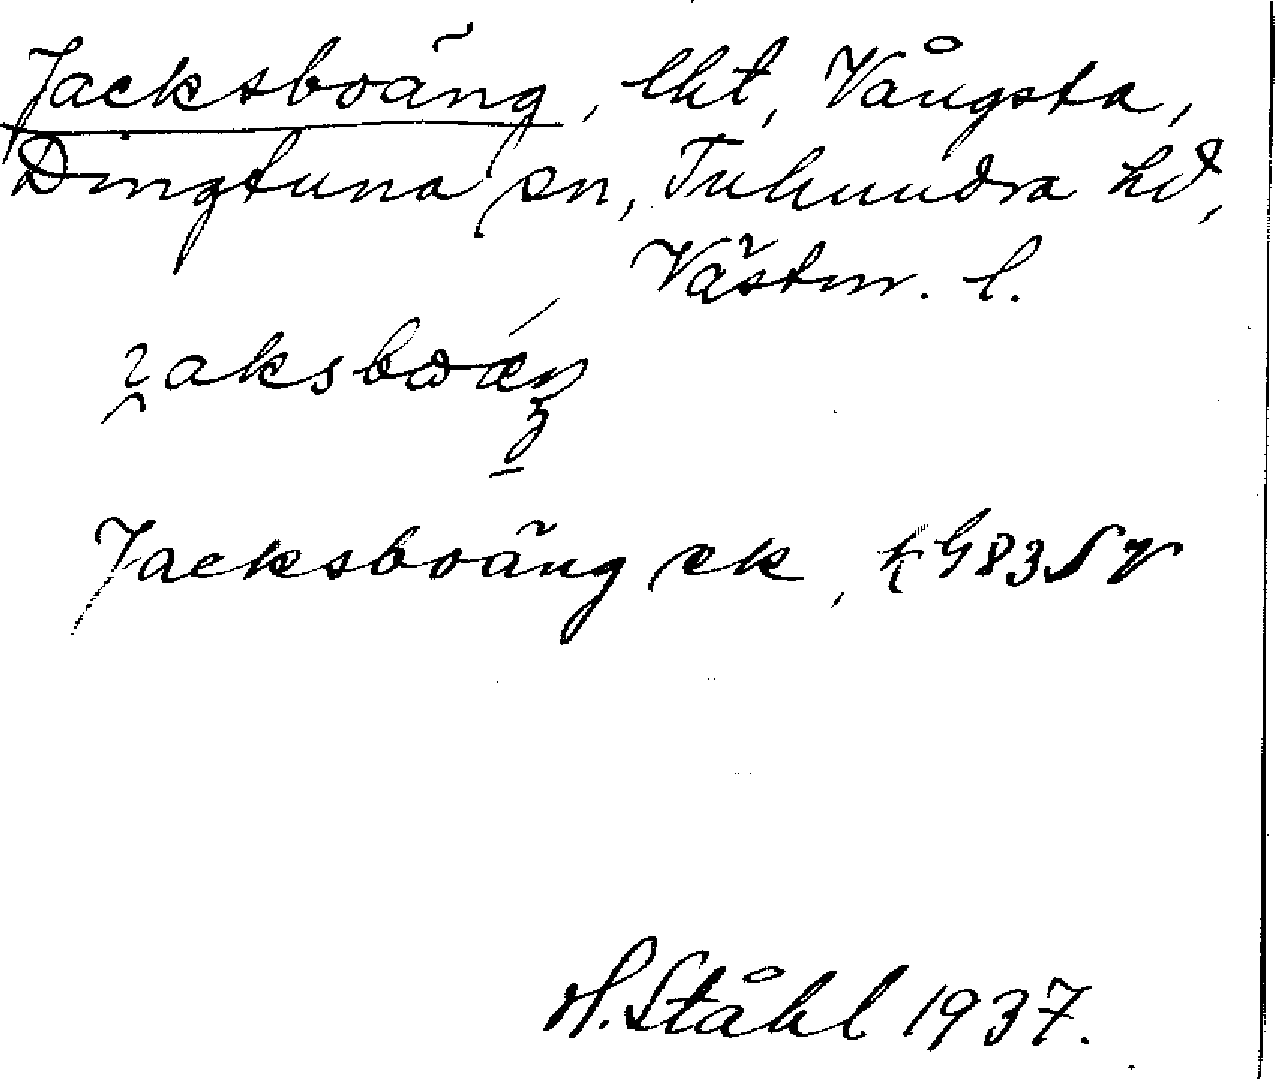 Jacksboäng, lht, Vångsta,
Dingtuna sn, Tuhundra hd,
Västm. l.
Jacksboäng ek,
H. Ståhl 1937.